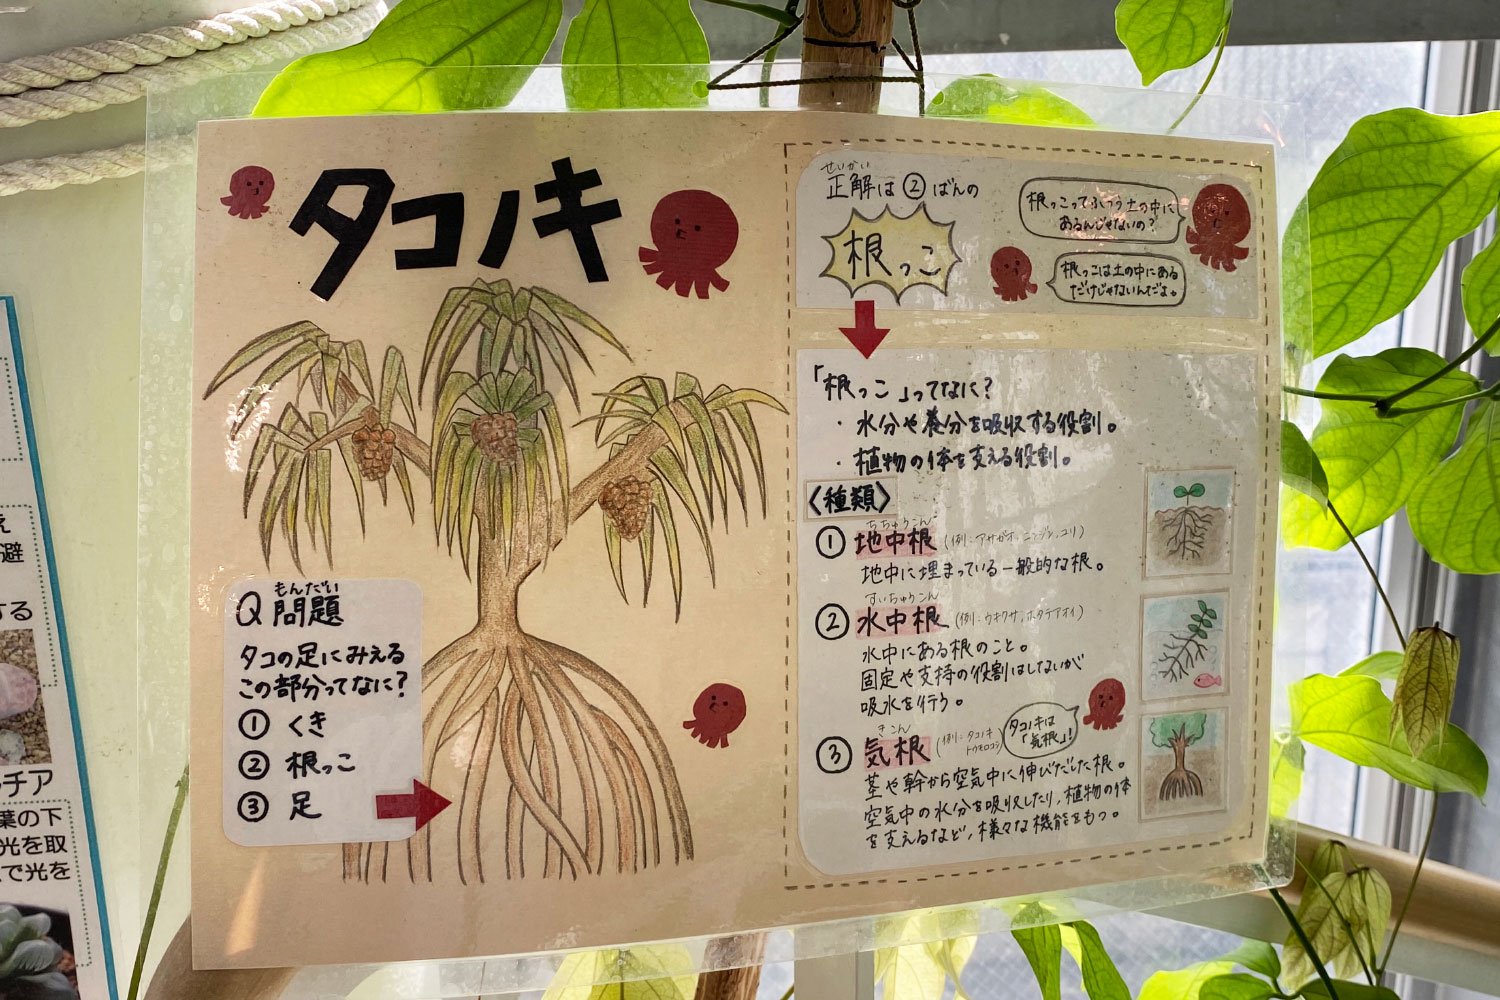 タコノキ
Q 問題
もんだい
タコの足にみえる
この部分ってなに?
① くき
② 根っこ
③ 足
せいかい
正解は②ばんの
根っこ
根っこってふつう土の中に
あるんじゃないの?
根っこは土の中にある
だけじゃないんだよ。
「根っこ」ってなに?
・水分や養分を吸収する役割。
・植物の体を支える役割。
〈種類〉
ちちゅうこん
① 地中根 (例:アサガオ、ニンジン、ユリ)
地中に埋まっている一般的な根。
すいちゅうこん
② 水中根 (例:ウキクサ、ホタテアオイ)
水中にある根のこと。
固定や支持の役割はしないが
吸水を行う。
きこん
③ 気根 (例:タコノキ
トウモロコシ)
タコノキは
「気根」!
茎や幹から空気中に伸びだした根。
空気中の水分を吸収したり、植物の体
を支えるなど、様々な機能をもつ。
避
する
チア
葉の下
光を取
で光を